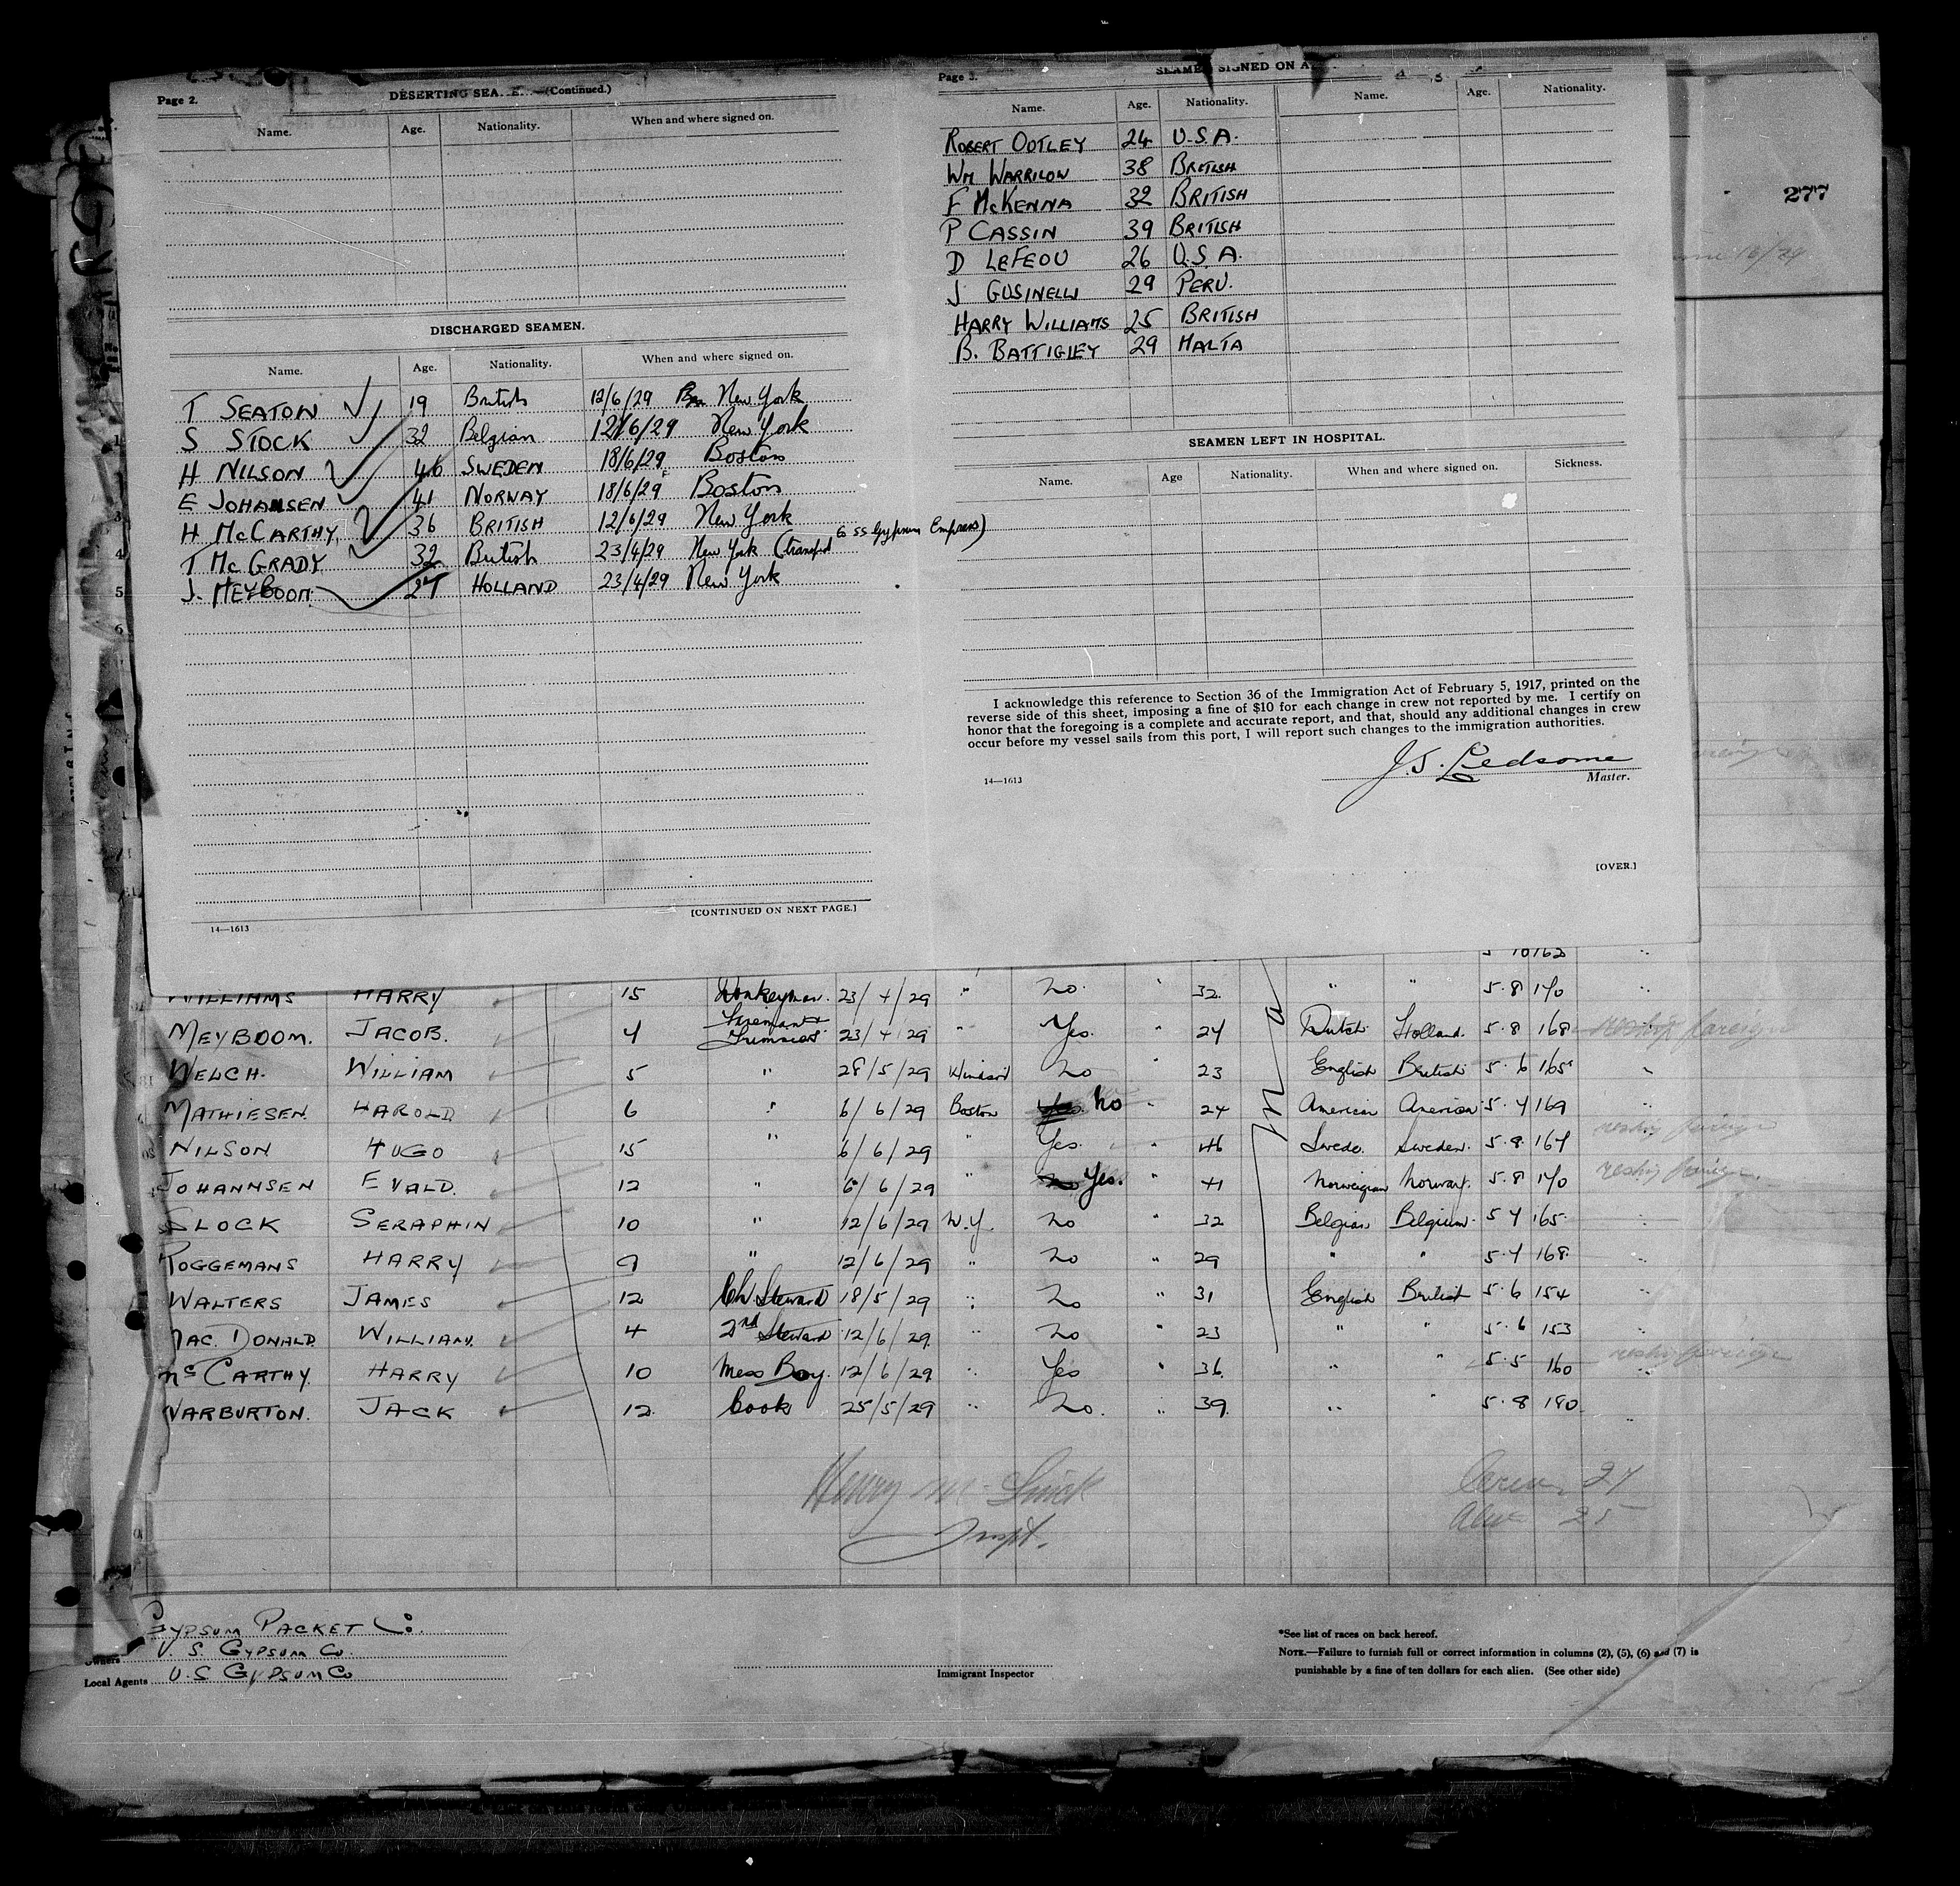 Page 2.
DESERTING SEA (Continued.)
Name. Age. Nationality. When and where signed on.
DISCHARGED SEAMEN.
Name. Age. Nationality. When and where signed on.
T SEATON 19 British 12/6/29 New York
S STOCK 32 Belgian 12/6/29 New York
H NILSON 46 SWEDEN 18/6/29 Boston
E JOHANSEN 41 NORWAY 18/6/29 Boston
H McCARTHY, 36 BRITISH 12/6/29 New York
T McGRADY 32 British 23/4/29 New York (transfd to SS Gypsum Empress)
J. MEYBOOM 27 HOLLAND 23/4/29 New York
[CONTINUED ON NEXT PAGE.]
14—1613
Page 3.
SEAMEN SIGNED ON A
Name. Age. Nationality. Name. Age. Nationality.
ROBERT OOTLEY 24 U.S.A.
WM WARRILOW 38 BRITISH
F McKENNA 32 BRITISH
P CASSIN 39 BRITISH
D LEFEOU 26 U.S.A.
J GUSINELLI 29 PERU.
HARRY WILLIAMS 25 BRITISH
B. BATTIGLEY 29 MALTA
SEAMEN LEFT IN HOSPITAL.
Name. Age Nationality. When and where signed on. Sickness.
I acknowledge this reference to Section 36 of the Immigration Act of February 5, 1917, printed on the
reverse side of this sheet, imposing a fine of $10 for each change in crew not reported by me. I certify on
honor that the foregoing is a complete and accurate report, and that, should any additional changes in crew
occur before my vessel sails from this port, I will report such changes to the immigration authorities.
J.S. Ledsome
14—1613 Master.
[OVER.]
277
WILLIAMS HARRY 15 Donkeyman. 23/4/29 " No. " 32. " " 5·8 170 "
MEYBOOM. JACOB. 4 Fireman & Trimmer 23/4/29 " Yes. " 24 Dutch Holland. 5·8 168 reship foreign
WELCH. WILLIAM 5 " 28/5/29 Windsor No " 23 English British 5·6 165 "
MATHIESEN. HAROLD 6 " 6/6/29 Boston Yes. No " 24 American American 5·4 169 "
NILSON HUGO 15 " 6/6/29 " Yes. " 46 Swede. Sweden. 5·8 164 reship foreign
JOHANNSEN EVALD. 12 " 6/6/29 " No Yes. " 41 Norweigian Norway. 5·8 170 reship foreign.
SLOCK SERAPHIN 10 " 12/6/29 N.Y. No " 32 Belgian Belgium. 5 4 165 "
ROGGEMANS HARRY 9 " 12/6/29 " No " 29 " " 5·4 168 "
WALTERS JAMES 12 Ch. Steward 18/5/29 " No " 31 English British 5·6 154 "
MAC. DONALD. WILLIAM. 4 2nd Steward 12/6/29 " No " 23 " " 5·6 153 "
McCARTHY. HARRY 10 Mess Boy. 12/6/29 " Yes " 36. " " 5·5 160 reship foreign
WARBURTON. JACK 12. Cook 25/5/29 " No. " 39. " " 5·8 180 "
Henry
Inspt.
Crew 27
Alien 25
GYPSUM PACKET Co.
Owners U.S. GYPSUM Co.
Local Agents U.S GYPSUM Co
Immigrant Inspector
*See list of races on back hereof.
NOTE.—Failure to furnish full or correct information in columns (2), (5), (6) and (7) is
punishable by a fine of ten dollars for each alien. (See other side)